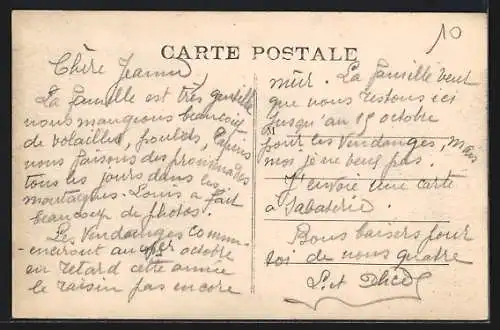 10
CARTE POSTALE
Chère Jeanne,
La famille est très gentille
nous mangeons beaucoup
de volailles, poulets, lapins
nous faisons des promenades
tous les jours dans les
montagnes. Louis a fait
beaucoup de photos.
Les Vendanges commen-
enceront au 1er octobre
en retard cette année
le raisin pas encore
mûr. La famille veut
que nous restons ici
jusqu'au 15 octobre
pour les Vendanges, mais
moi je ne veux pas.
J'envoie une carte
à Sabaterie.
Bons baisers pour
toi de nous quatre
L. et